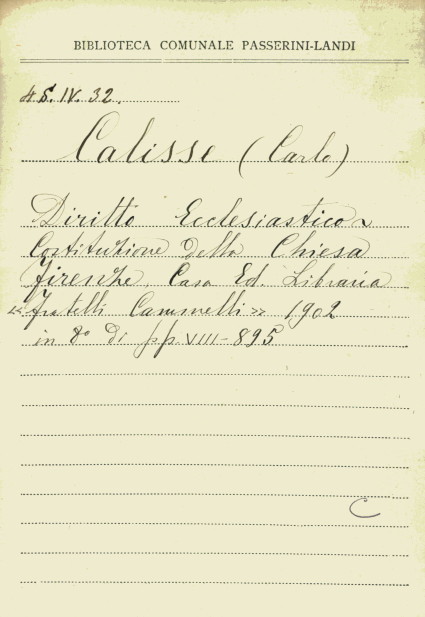 BIBLIOTECA COMUNALE PASSERINI-LANDI
4S.IV.32.
Calisse (Carlo)
Diritto Ecclesiastico
Costituzione della Chiesa
Firenze, Casa Ed. Libraria
«Fratelli Cammelli» 1902
in 8º di pp. VIII-895
C